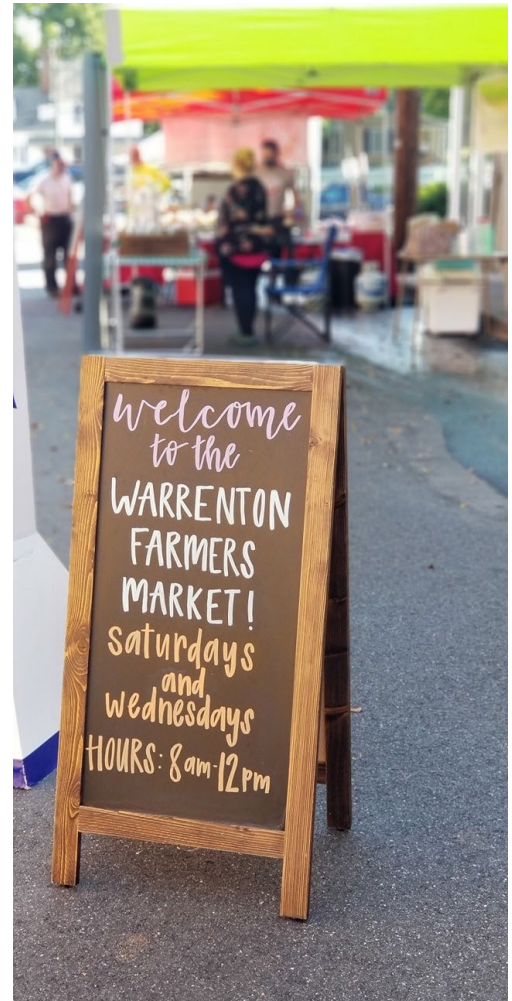 welcome
to the
WARRENTON
FARMERS
MARKET!
saturdays
and
wednesdays
HOURS: 8am-12pm